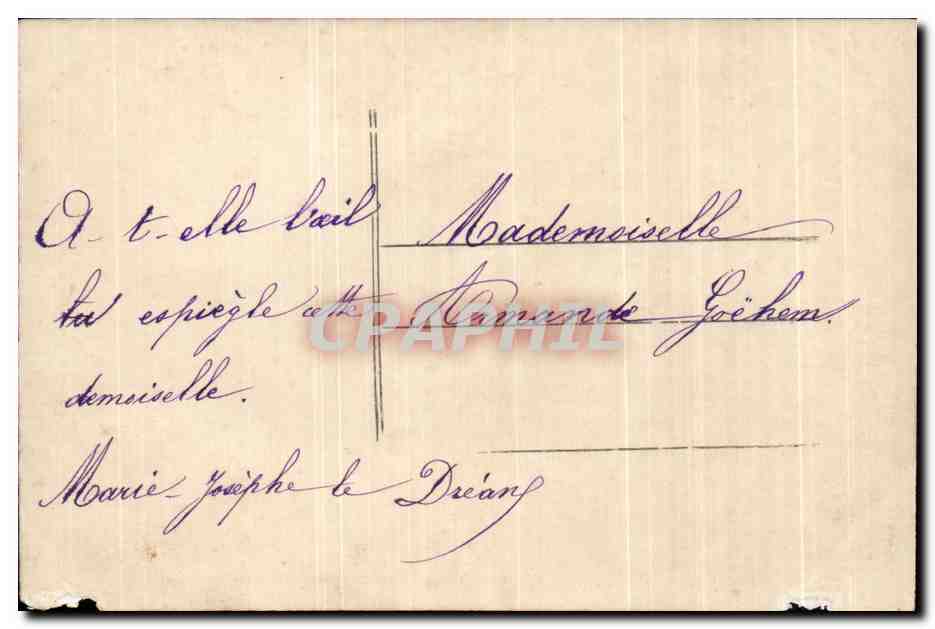 A-t-elle l'œil
espiègle cette
demoiselle.
Marie-Josèphe le Dréan
Mademoiselle
Amande Goëhem.
CPAPHIL